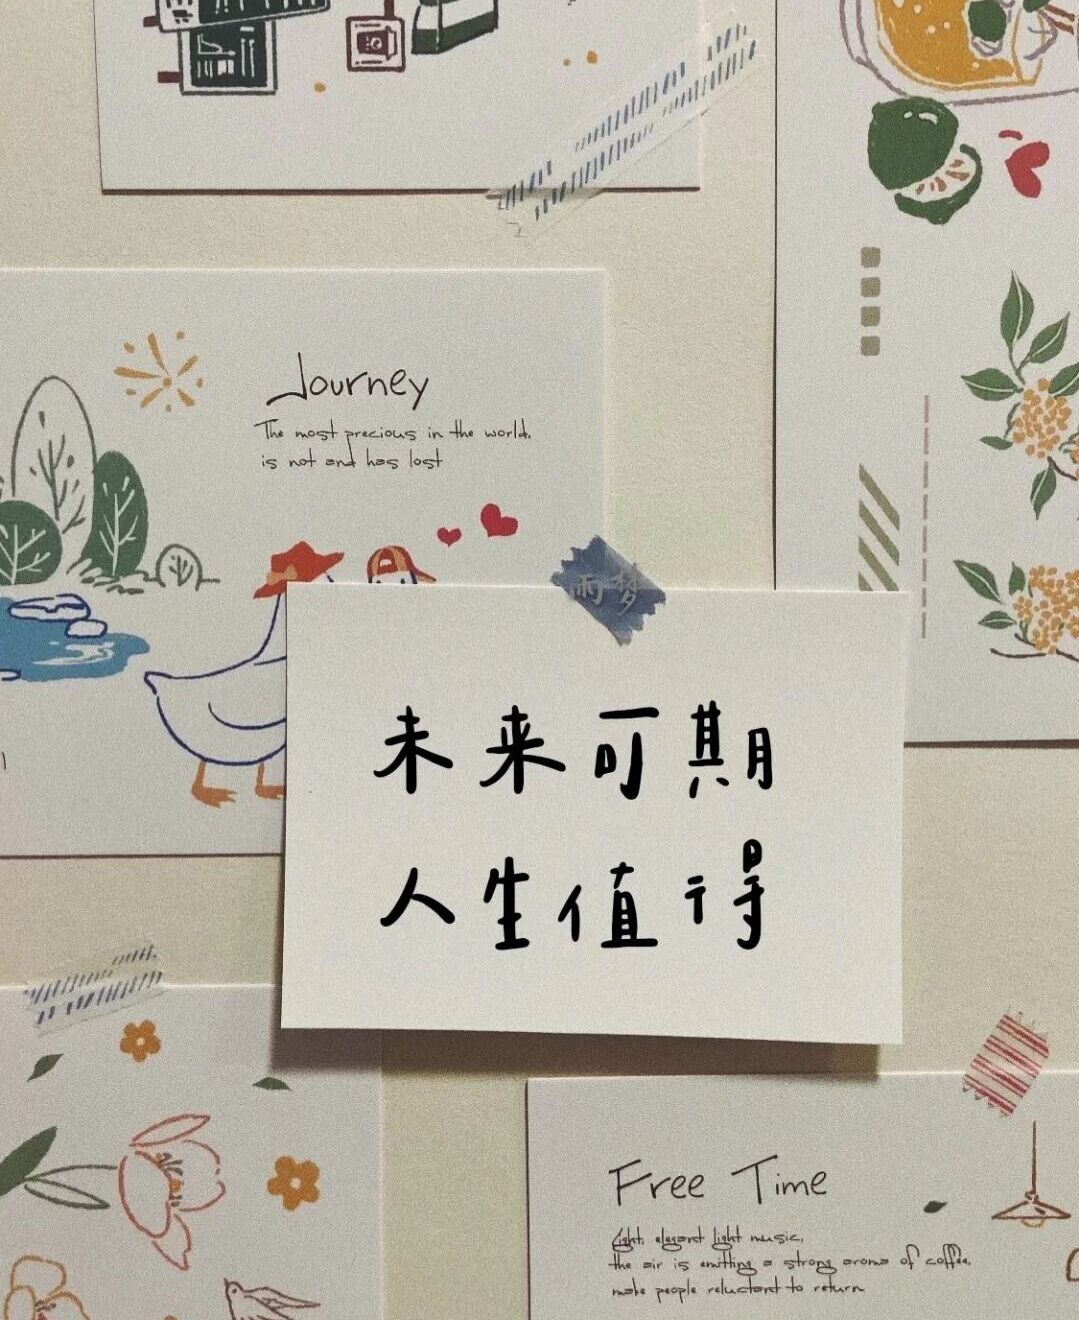 Journey
The most precious in the world.
is not and has lost
雨梦
未来可期
人生值得
Free Time
Light, elegant light music,
the air is emitting a strong aroma of coffee,
make people reluctant to return